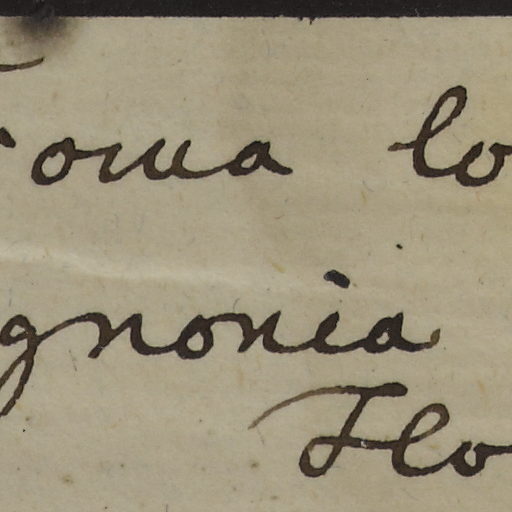 owa lo
gnonia
Flo